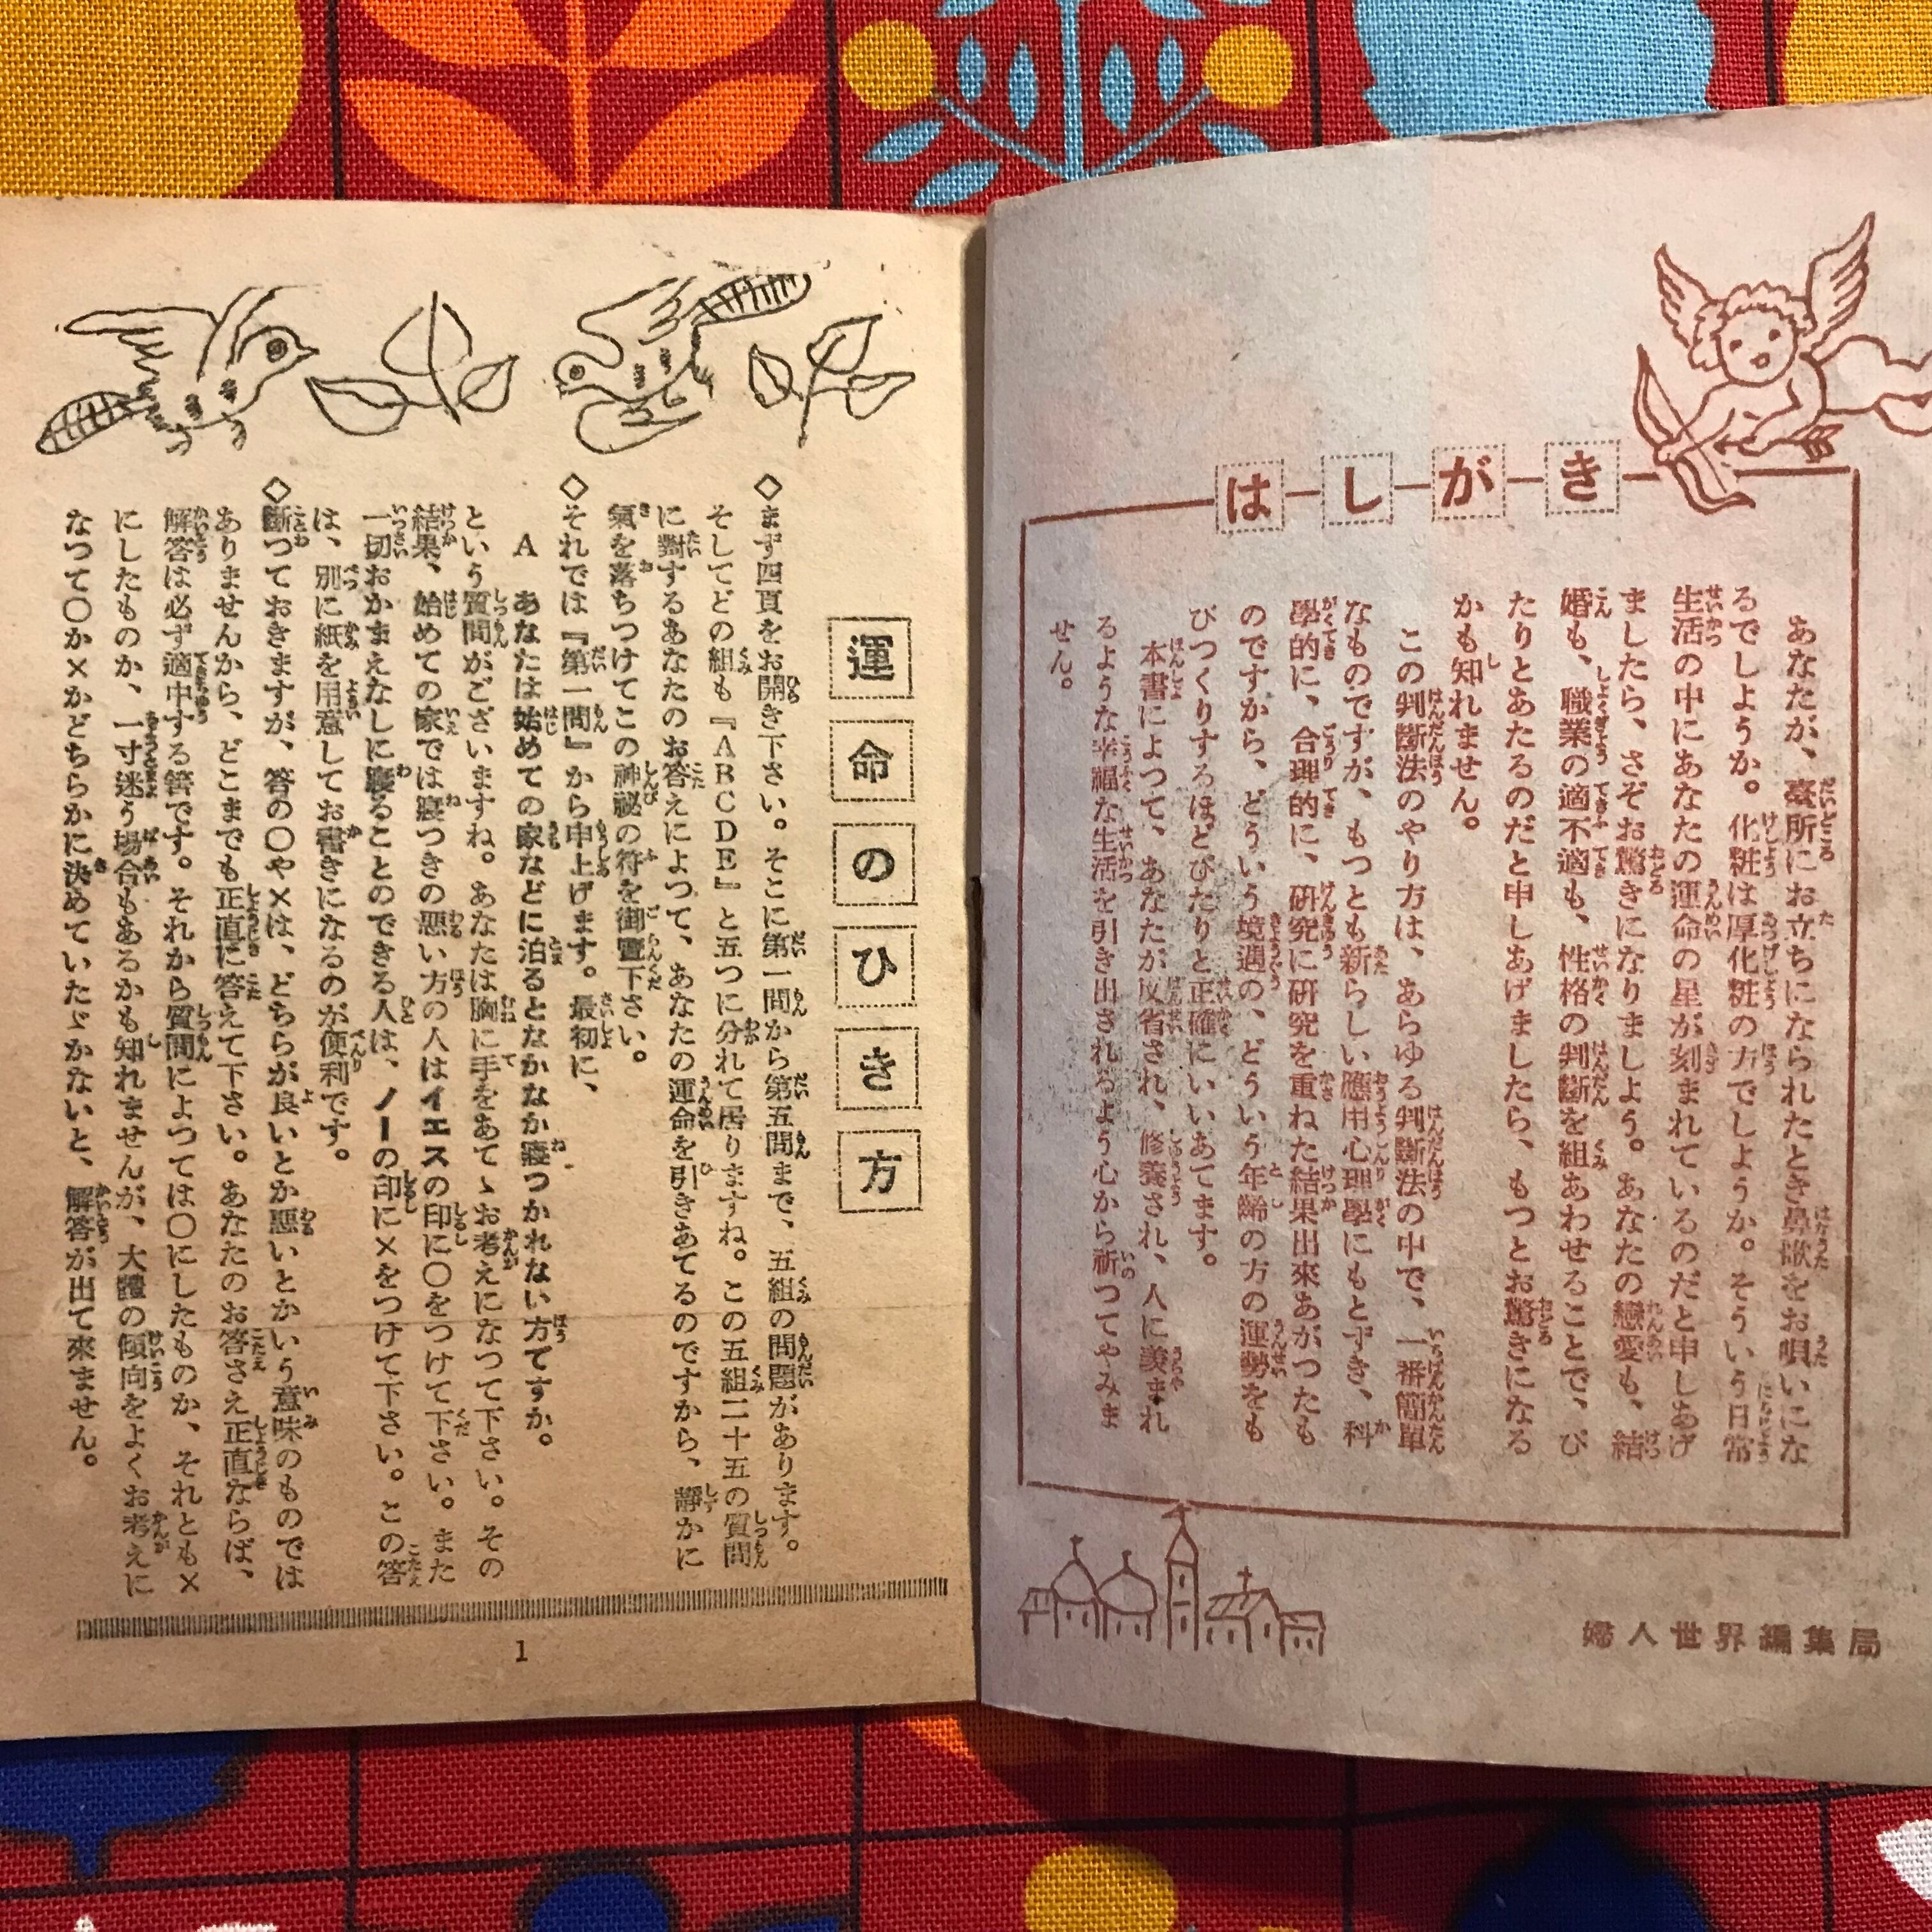 はしがき
あなたが、臺所にお立ちになられたとき鼻歌をお唄いにな
るでしようか。化粧は厚化粧の方でしようか。そういう日常
生活の中にあなたの運命の星が刻まれているのだと申しあげ
ましたら、さぞお驚きになりましよう。あなたの戀愛も、結
婚も、職業の適不適も、性格の判斷を組あわせることで、ぴ
たりとあたるのだと申しあげましたら、もつとお驚きになる
かも知れません。
この判斷法のやり方は、あらゆる判斷法の中で、一番簡單
なものですが、もつとも新らしい應用心理學にもとずき、科
學的に、合理的に、研究に研究を重ねた結果出來あがつたも
のですから、どういう境遇の、どういう年齡の方の運勢をも
びつくりするほどぴたりと正確にいいあてます。
本書によつて、あなたが反省され、修養され、人に羨まれ
るような幸福な生活を引き出されるよう心から祈つてやみま
せん。
婦人世界編集局
運命のひき方
◇まず四頁をお開き下さい。そこに第一問から第五問まで、五組の問題があります。
そしてどの組も『ABCDE』と五つに分れて居りますね。この五組二十五の質問
に對するあなたのお答えによつて、あなたの運命を引きあてるのですから、靜かに
氣を落ちつけてこの神祕の符を御覽下さい。
◇それでは『第一問』から申上げます。最初に、
A あなたは始めての家などに泊るとなかなか寢つかれない方ですか。
という質問がございますね。あなたは胸に手をあてゝお考えになつて下さい。その
結果、始めての家では寢つきの悪い方の人はイエスの印に〇をつけて下さい。また
一切おかまえなしに寢ることのできる人は、ノーの印に×をつけて下さい。この答
は、別に紙を用意してお書きになるのが便利です。
◇斷つておきますが、答の〇や×は、どちらが良いとか悪いとかいう意味のものでは
ありませんから、どこまでも正直に答えて下さい。あなたのお答さえ正直ならば、
解答は必ず適中する筈です。それから質問によつては〇にしたものか、それとも×
にしたものか、一寸迷う場合もあるかも知れませんが、大體の傾向をよくお考えに
なつて〇か×かどちらかに決めていたゞかないと、解答が出て來ません。
1